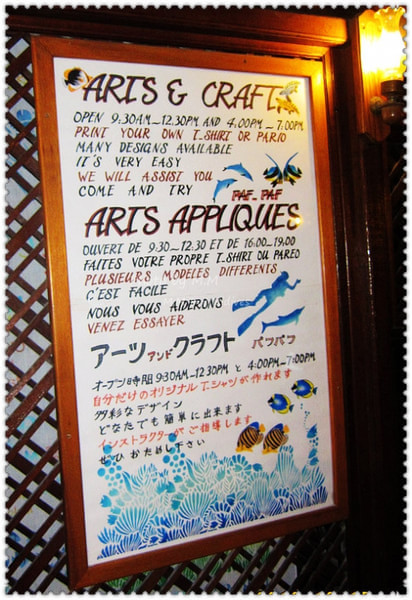 ARTS & CRAFT
OPEN 9:30AM~12:30PM AND 4:00PM~7:00PM
PRINT YOUR OWN T.SHIRT OR PARIO
MANY DESIGNS AVAILABLE
IT'S VERY EASY
WE WILL ASSIST YOU
COME AND TRY
PAF-PAF
ARTS APPLIQUES
OUVERT DE 9:30~12:30 ET DE 16:00~19:00
FAITES VOTRE PROPRE T.SHIRT OU PAREO
PLUSIEURS MODELES DIFFERENTS
C'EST FACILE
NOUS VOUS AIDERONS
VENEZ ESSAYER
アーツ アンド クラフト パフパフ
オープン時間 9:30AM~12:30PM と 4:00PM~7:00PM
自分だけのオリジナルT.シャツが作れます
多彩なデザイン
どなたでも簡単に出来ます
インストラクターがご指導します
ぜひおためし下さい